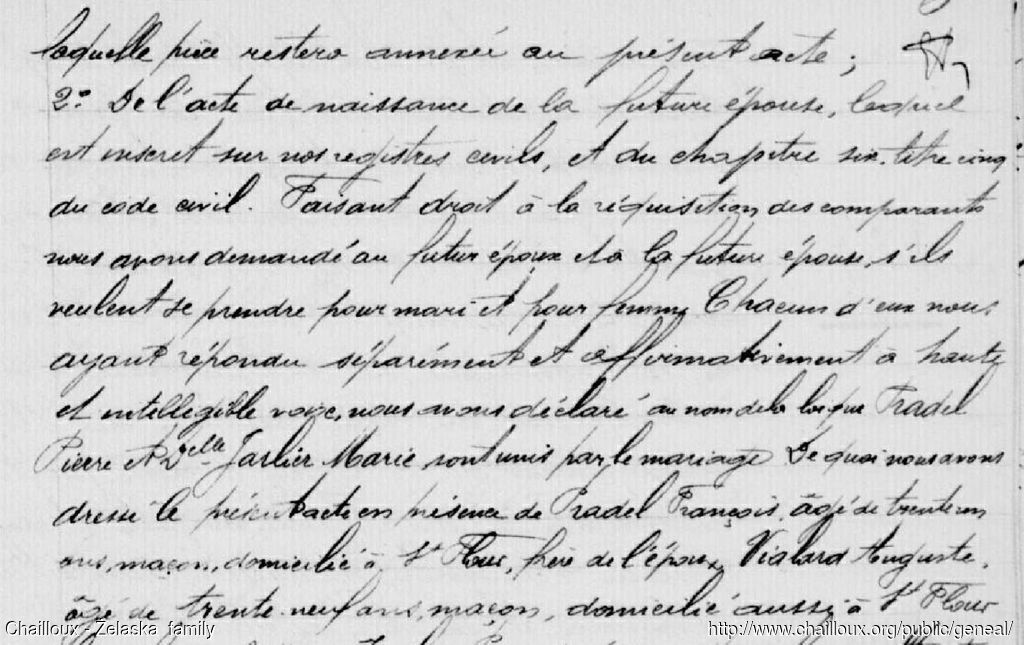 laquelle pièce restera annexée au présent acte;
2° De l'acte de naissance de la future épouse, lequel
est inscrit sur nos registres civils, et du chapitre six, titre cinq
du code civil. Faisant droit à la réquisition des comparants
nous avons demandé au futur époux et à la future épouse, s'ils
veulent se prendre pour mari et pour femme Chacun d'eux nous
ayant répondu séparément et affirmativement à haute
et intelligible voix, nous avons déclaré au nom de la loi que Pradel
Pierre et Delle Jarlier Marie sont unis par le mariage De quoi nous avons
dressé le présent acte en présence de Pradel François, âgé de trente un
ans, maçon, domicilié à St Flour, frère de l'époux, Vialard Auguste,
âgé de trente-neuf ans, maçon, domicilié aussi à St Flour
Chailloux - Zelaska family
http://www.chailloux.org/public/geneal/